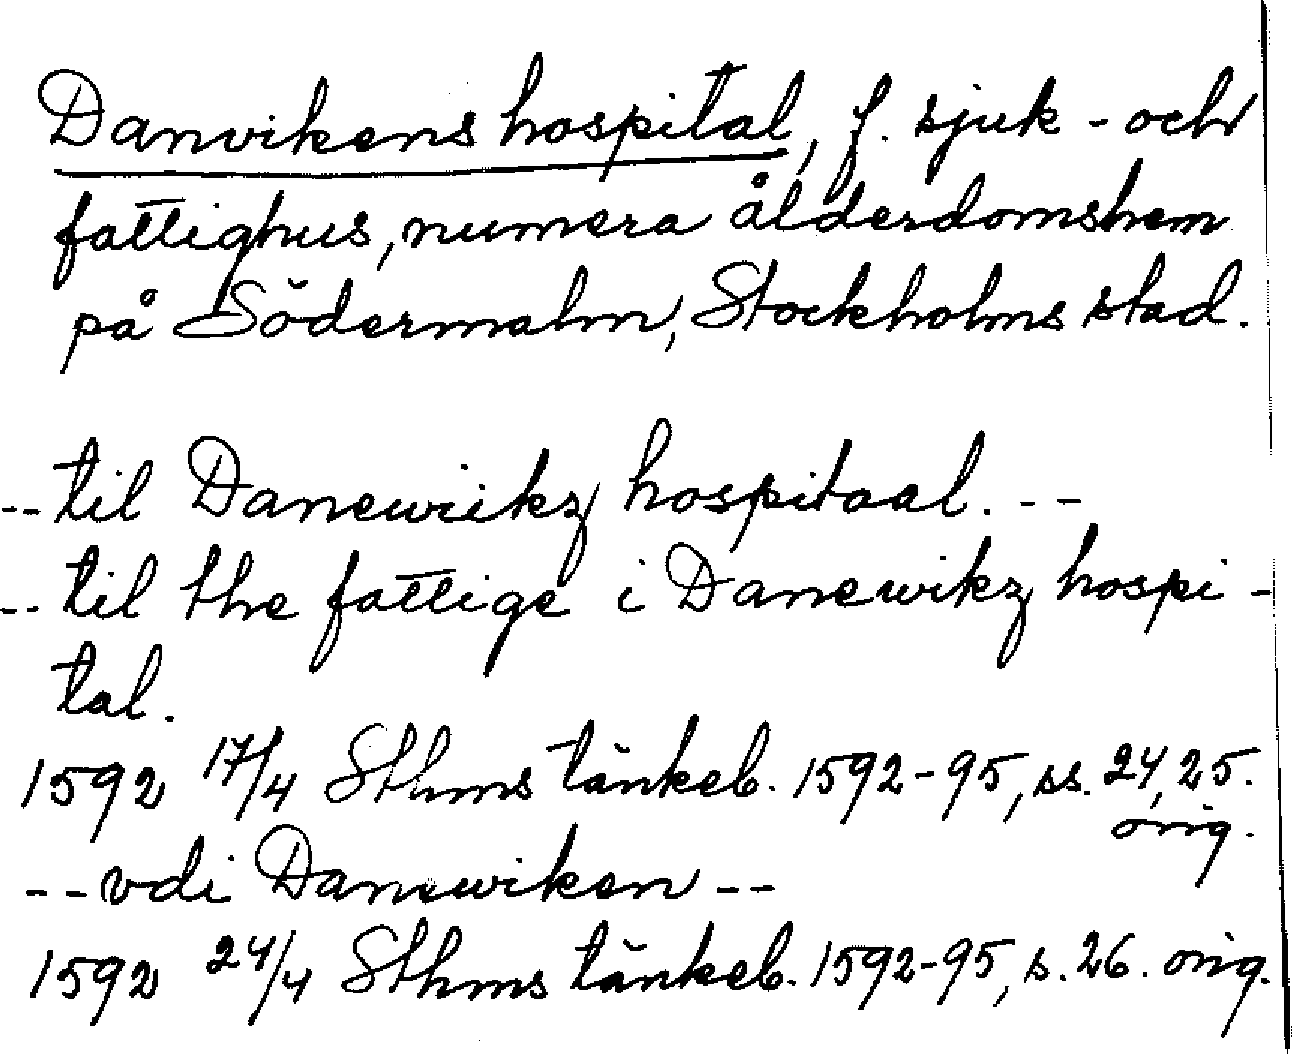 Danvikens hospital, f. sjuk- och
fattighus, numera ålderdomshem
på Södermalm, Stockholms stad.
-- til Danewiikz hospitaal. --
-- til the fattige i Danewikz hospi-
tal.
1592 17/4 Sthms tänkeb. 1592-95, ss. 24, 25.
orig.
-- vdi Danewiken --
1592 24/4 Sthms tänkeb. 1592-95, s. 26. orig.